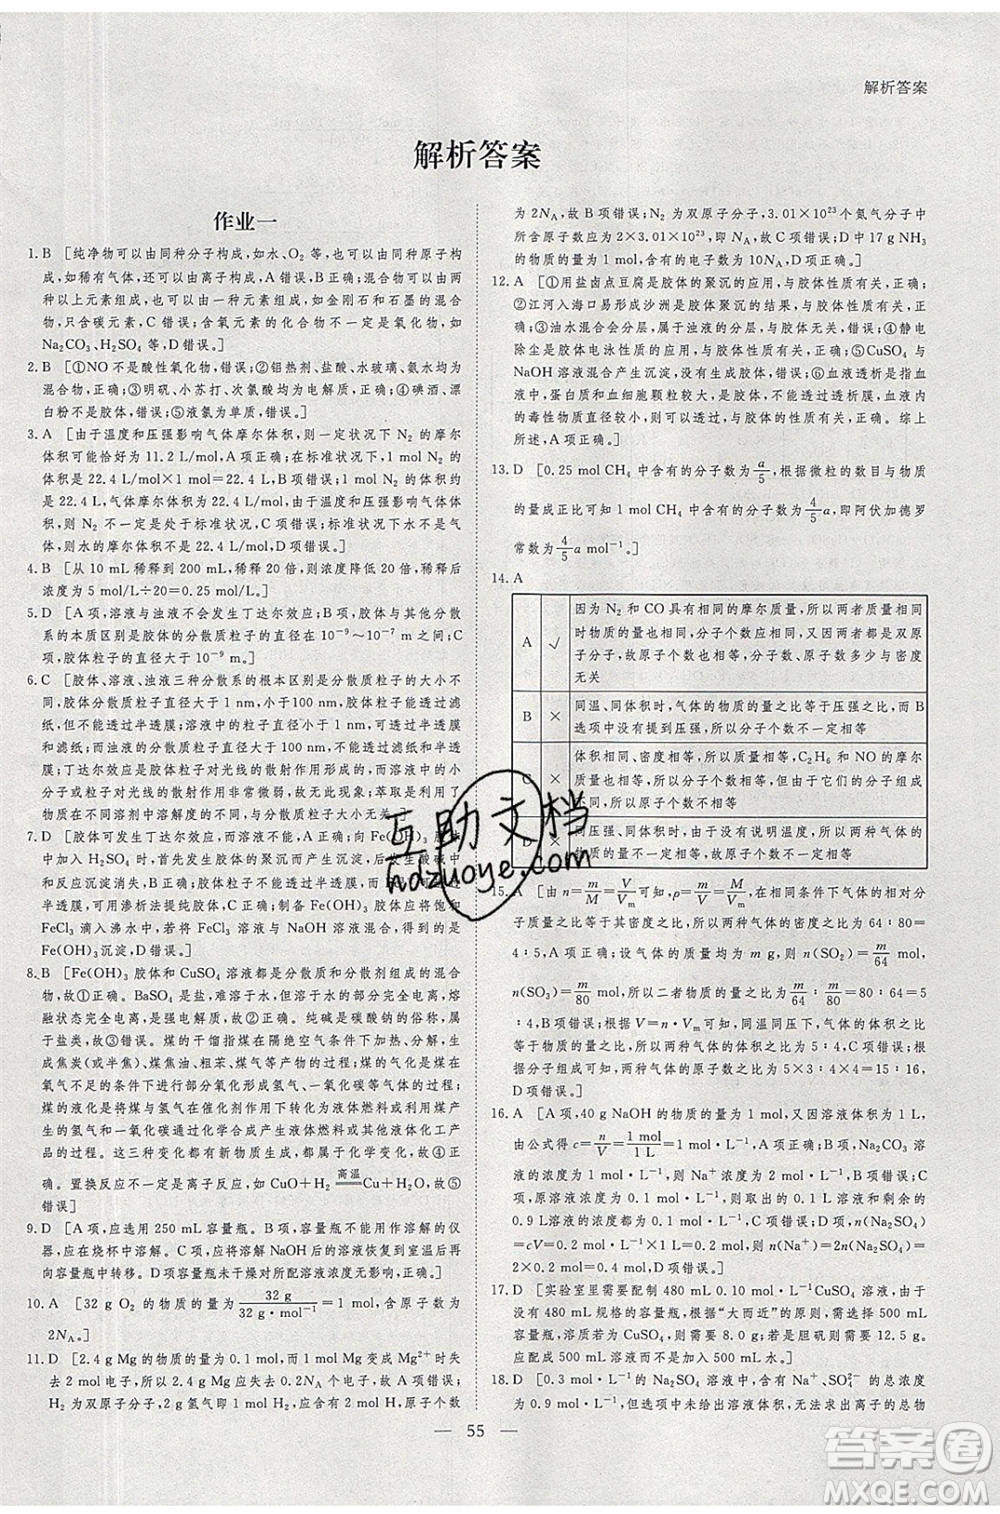 解析答案
解析答案
作业一
1.B [纯净物可以由同种分子构成,如水、O₂ 等,也可以由同种原子构
成,如稀有气体,还可以由离子构成,A错误,B正确;混合物可以由两
种以上元素组成,也可以由一种元素组成,如金刚石和石墨的混合
物,只含碳元素,C 错误;含氧元素的化合物不一定是氧化物,如
Na₂CO₃、H₂SO₄ 等,D错误。]
2.B [①NO不是酸性氧化物,错误;②铝热剂、盐酸、水玻璃、氨水均为
混合物,正确;③明矾、小苏打、次氯酸均为电解质,正确;④碘酒、漂
白粉不是胶体,错误;⑤液氯为单质,错误。]
3.A [由于温度和压强影响气体摩尔体积,则一定条件下 N₂ 的摩尔
体积可能恰好为 11.2 L/mol,A项正确;标准状况下,氧气的体积为
22.4 L/mol×1 mol=22.4 L,B项错误;当状况不能确定是否为标准
状况时,22.4 L气体的物质的量不一定为 1 mol,当气体摩尔体积
为 22.4 L/mol时,气体摩尔体积受温度和压强影响,不一定是标准状
况,则 N₂ 不一定是处于标准状况,C 项错误;标准状况下水不是气
体,水的摩尔体积不是 22.4 L/mol,D项错误。]
4.B [从 10 mL 稀释至 200 mL,溶液稀释 20 倍,则稀释 20 倍后溶液
浓度为 5 mol/L÷20=0.25 mol/L。]
5.D [A项,溶液与浊液不会发生丁达尔效应;B项,胶体与其他分散
系的本质区别是胶体的分散质粒子的直径在 10⁻⁹～10⁻⁷ m 之间;C
项,胶体粒子的直径大于 10⁻⁹ m。]
6.C [胶体、溶液、浊液三种分散系的根本区别是分散质粒子的大小不
同,胶体分散质粒子直径大于1 nm,小于100 nm,能通过滤
纸,但不能透过半透膜;溶液中的分散质粒子能透过半透膜
和滤纸;浊液分散质粒子直径大于100 nm,不能透过半透膜和滤
纸;丁达尔效应是胶体粒子对光线的散射作用形成的,溶液中粒子
小,分子或离子对光线的散射作用非常微弱,故无此现象;萃取是利用了
物质在不同溶剂中溶解度的不同。]
7.D [胶体可发生丁达尔效应,而溶液不能,A 正确;向 Fe(OH)₃
中加入 H₂SO₄ 时,首先发生胶体的聚沉而产生沉淀,然后发生酸碱中
和反应沉淀消失,B正确;胶体不能透过半透膜,而溶液能透过半透
膜,可用渗析法提纯胶体,C正确;制备 Fe(OH)₃ 胶体应将饱和
FeCl₃ 滴入沸水中,若将 FeCl₃ 溶液与 NaOH 溶液混合,得到的是
Fe(OH)₃沉淀,D错误。]
8.B [Fe(OH)₃ 胶体和 CuSO₄ 溶液是分散质和分散剂组成的混合
物,故①错误。BaSO₄ 是盐,难溶于水,但溶于水的部分完全电离,
熔融状态完全电离,故②正确。纯碱是碳酸钠的俗称,
属于盐类,故③错误。煤的干馏指煤在隔绝空气条件下加热、分解,
生成焦炭(或半焦)、煤焦油、粗苯、煤气等产物的过程;煤的气化是煤在
氧气不足的条件下进行部分氧化形成H₂、一氧化碳等气体的过程;
煤的液化是煤与氢气在催化剂作用下转化为液体燃料或利用煤产
生的一氧化碳和氢气通过化学合成产生液体燃料或其他液体化工产
品的过程。三种变化都有新物质生成,属于化学变化,故④正
确。置换反应不一定是离子反应,如 CuO+H₂ ═高温═ Cu+H₂O,故⑤
错误]
9.D [A 项,应选用 250 mL容量瓶。B 项,容量瓶不能用作溶解的仪
器,应在烧杯中溶解。C 项,应将 NaOH溶解后恢复到室温后再
向容量瓶中转移。D项容量瓶未干燥对所配溶液浓度无影响。]
10.A [32 g O₂ 的物质的量为 32 g / 32 g·mol⁻¹ =1 mol,含原子数为
2N_A。]
11.D [2.4 g Mg 的物质的量为 0.1 mol,而 1 mol Mg 变成 Mg²⁺ 时失
去 2 mol电子,所以应该失去 0.2N_A 个电子,故 A项错误;1 mol
H₂ 为双原子分子,2 g 氢气为 1 mol,即 2 g 氢气所含原子个数
为 2N_A,故 B 项错误;N₂ 为双原子分子,3.01×10²³ 个氮气分子
所含原子数应为 2×3.01×10²³,故 C 项错误;D 中 17 g NH₃
的物质的量为 1 mol,含有的电子数为 10N_A,正确。]
12.A [①用盐卤点豆腐是胶体聚沉的应用,与胶体的性质有关;
②江河入海口易形成沙洲是胶体聚沉的结果,与胶体的性质有
关;③油水混合会分层,属于浊液的性质,与胶体无关;④静电
除尘是胶体电泳性质的应用,与胶体的性质有关;⑤CuSO₄ 与
NaOH 溶液混合产生沉淀,属于溶液的性质,与胶体无关;⑥血液透析是利
用血液中,蛋白质和血细胞颗粒较大,不能透过透析膜,血液内
的毒性物质直径较小,可以透过,与胶体的性质有关。综上
所述,A正确。]
13.D [0.25 mol CH₄ 中含有的分子数为 a/5,根据微粒的数目与物质
的量成正比可知 1 mol CH₄ 中含有的分子数为 4/5 a,即阿伏加德罗
常数为 4/5 a mol⁻¹。]
14.A
A √ 因为 N₂ 和 CO具有相同的摩尔质量,所以两者质量相同时物质的量也相同,分子个数应相等,又因为都是双原子分子,故原子个数也相等,原子个数多少与密度无关
B × 同温、同体积时,气体的物质的量之比等于压强之比,而B选项中没有提到压强,所以分子个数不一定相等
C × 体积相同、密度相等,所以质量相等,C₂H₆ 和 NO 的摩尔质量相等,所以物质的量相等,但由于它们的分子组成不同,所以原子个数不相等
D × 同压强、同体积时,由于没有说明温度,所以两者的物质的量不一定相等,故原子个数不一定相等
15.A [由 n=m/M=V/Vm可知,ρ=m/V=M/Vm,在相同条件下气体的相对分
子质量之比等于其密度之比,所以两种气体的密度之比为 64:80=
4:5,A 项正确;设气体的质量均为 m g,则 n(SO₂)=m/64 mol,
n(SO₃)=m/80 mol,所以二者物质的量之比为 m/64:m/80=80:64=5
:4,B项错误;根据V=n·Vm可知,同温同压下,气体体积之比等
于物质的量之比,所以两种气体的体积之比为 5:4,C 项错误;根
据分子组成可知,两种气体的原子数之比为 5×3:4×4=15:16,
D项错误。]
16.A [A 项,40 g NaOH 的物质的量为 1 mol,溶液体积为 1 L,
由公式得 c=n/V=1 mol/1 L=1 mol·L⁻¹,A正确;B项,Na₂CO₃ 溶
液的浓度为 1 mol·L⁻¹,所以 Na⁺ 浓度为 2 mol·L⁻¹,B 错误;C
项,原溶液的浓度为 1 mol·L⁻¹,所以取出的0.1 L溶液和剩余的
0.9 L溶液的浓度都为 1 mol·L⁻¹,C错误;D项,n(Na₂SO₄)
=cV=0.2 mol·L⁻¹×1 L=0.2 mol,n(Na⁺)=2n(Na₂SO₄)=
2×0.2 mol=0.4 mol,D项错误。]
17.D [实验室里需要 480 mL 0.10 mol·L⁻¹ 的 CuSO₄ 溶液,由于
没有 480 mL 规格的容量瓶,根据“大而近”的原则,需选择 500 mL
容量瓶,那么溶质若为 CuSO₄,需要 8.0 g;若是胆矾则需要 12.5 g。
应配成 500 mL溶液而不是加入 500 mL水,所以选 D。]
18.D [0.3 mol·L⁻¹ 的 Na₂SO₄ 溶液中含有 Na⁺、SO₄²⁻ 的总浓度
为 0.9 mol·L⁻¹,但选项 A 中未给出溶液体积,不能计算离子的物
55
互助文档
hdzuoye.com
答案圈
MXQE.COM